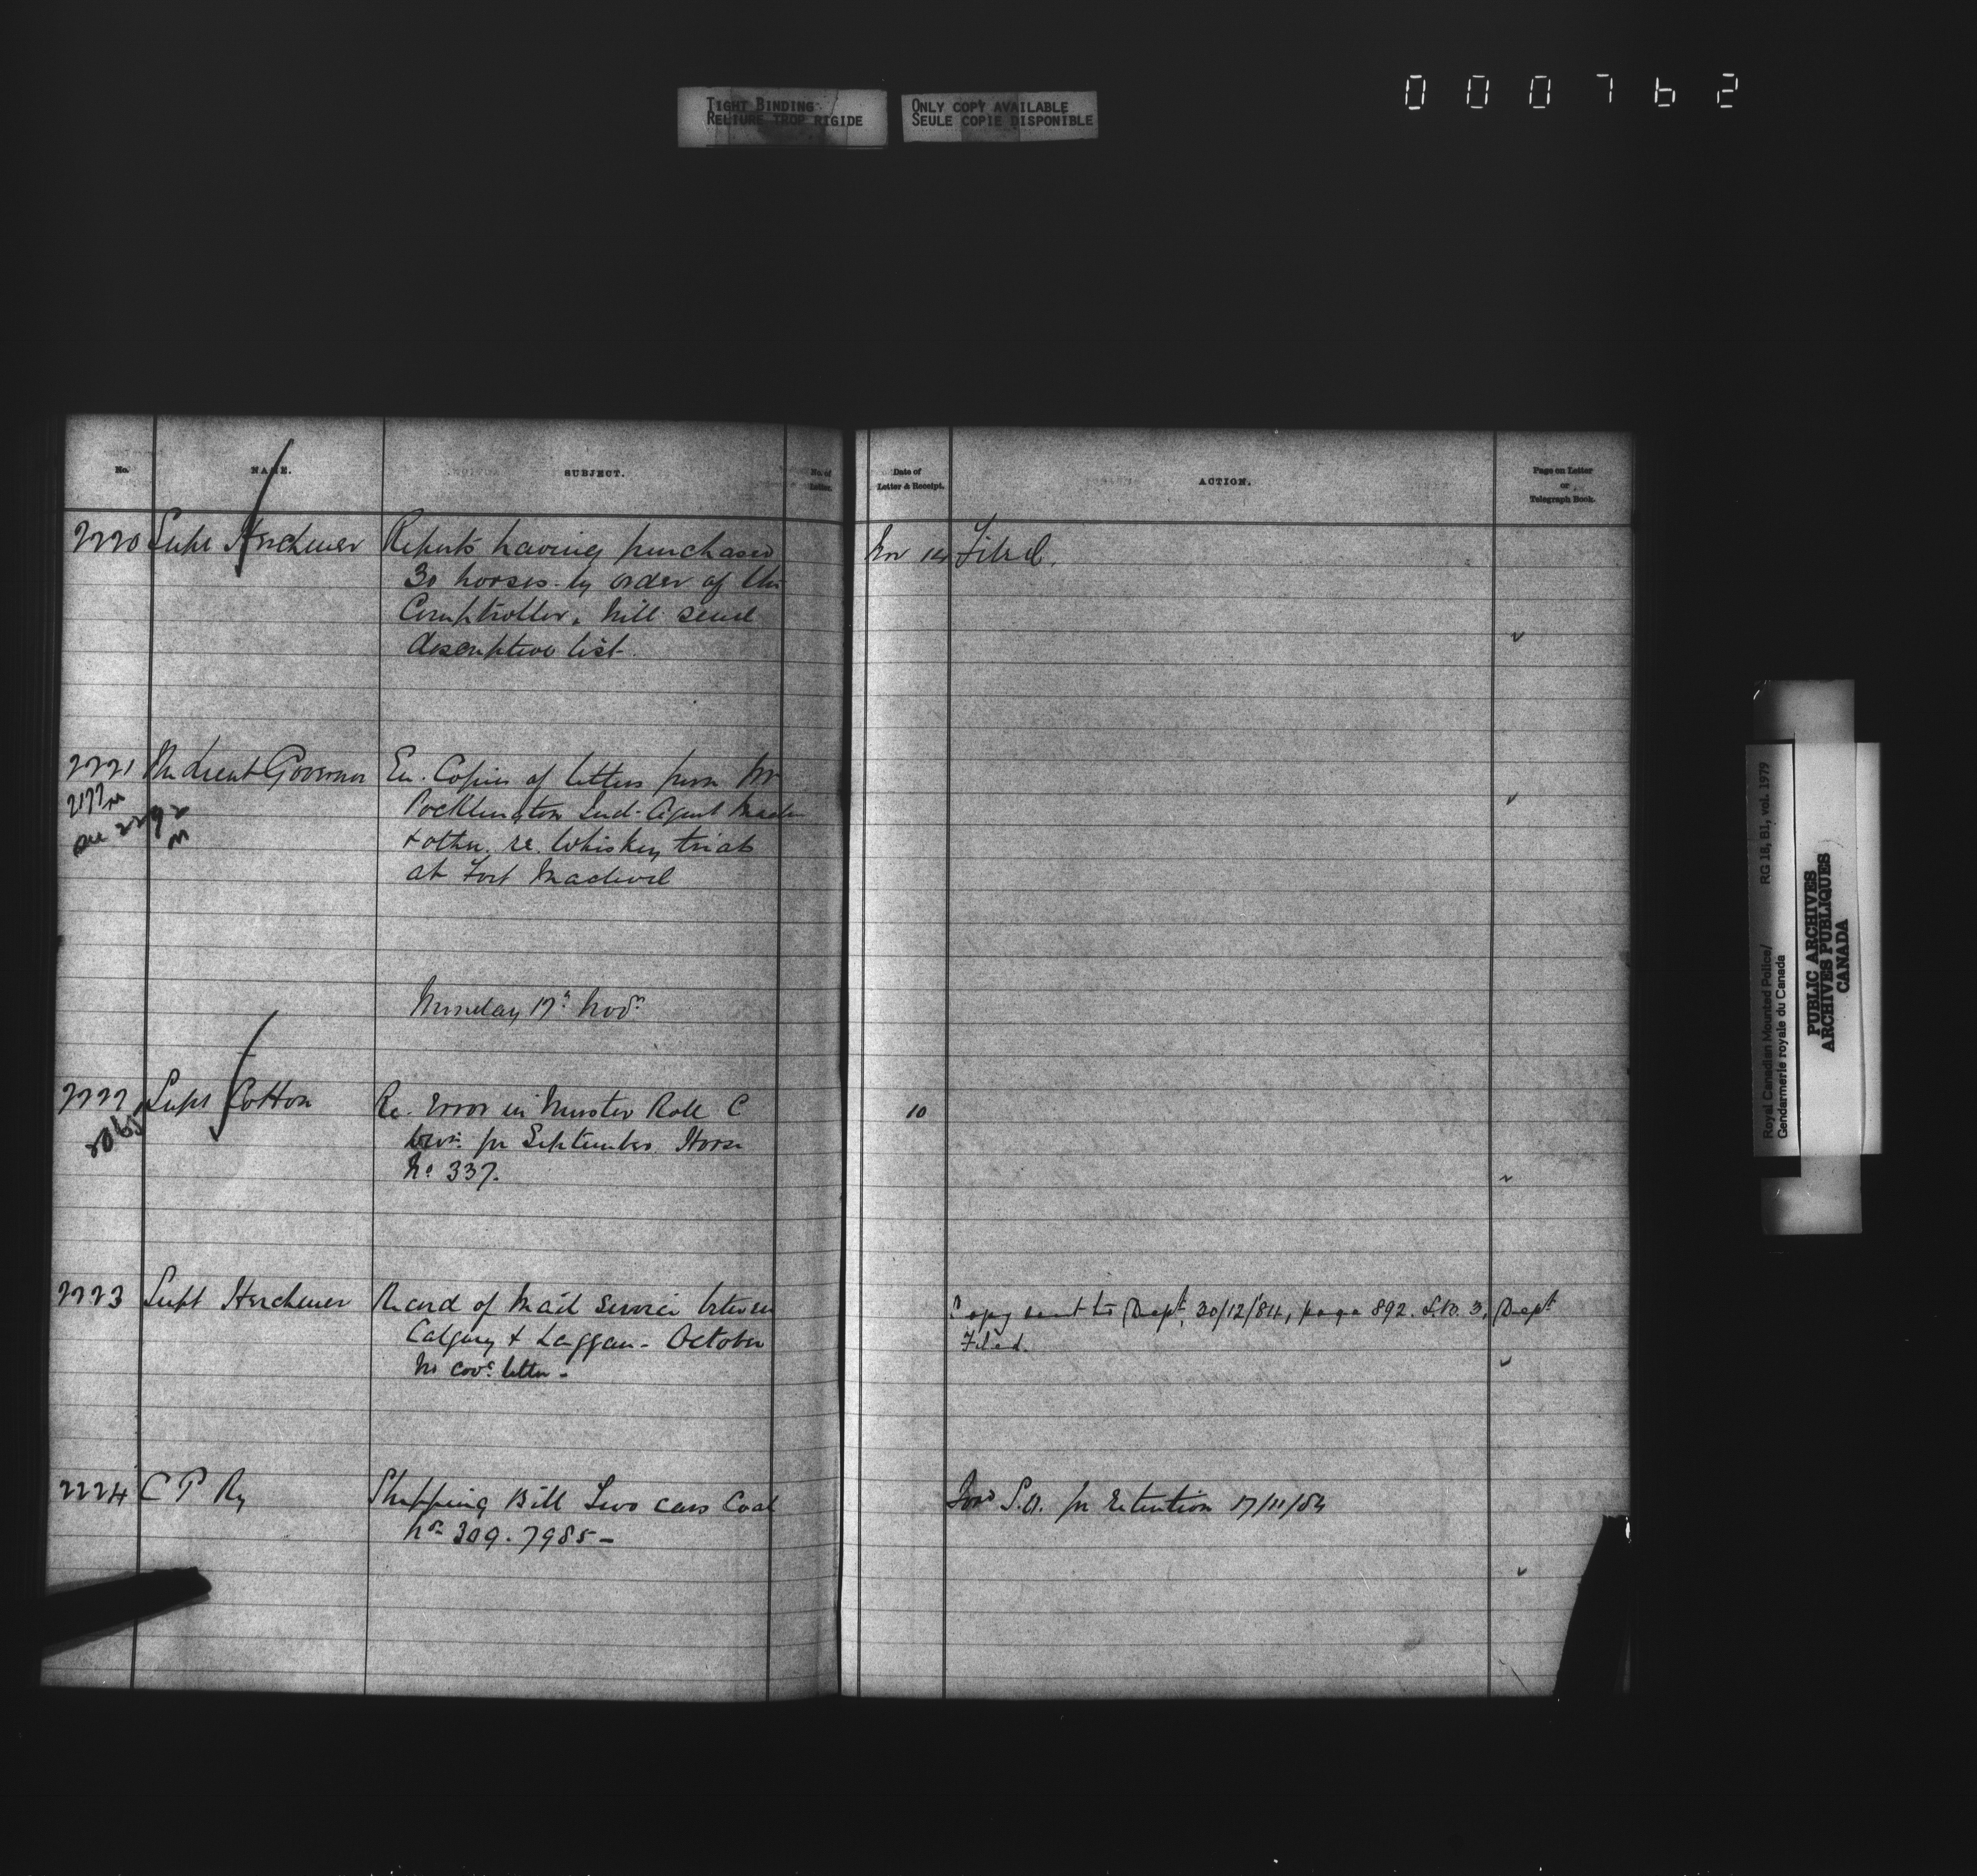 TIGHT BINDING
RELIURE TROP RIGIDE
ONLY COPY AVAILABLE
SEULE COPIE DISPONIBLE
000762
No. NAME. SUBJECT. No. of Letter. Date of Letter & Receipt. ACTION. Page on Letter or Telegraph Book.
2220 Supt Herchmer Reports having purchased Nov 14 Filed.
30 horses by order of the
Comptroller, will send
descriptive list.
2221 Lieut Governor En. Copies of letters from Mr
2177
Pocklington Ind. Agent Macleod
see 2292
& other re. Whiskey trials
at Fort Macleod
Monday 17th Novr
2222 Supt Cotton Re. Error in Muster Roll C 10
2065
Divn. for September. Horse
No 337.
2223 Supt Herchmer Record of Mail Service between Copy sent to Dept. 30/12/84, page 892. L.B. 3. Dept
Calgary & Laggan - October Filed.
No covg letter -
2224 C P Ry Shipping Bill Two cars Coal Ford S.O. for retention 17/11/84
Nos 309. 7985 -
Royal Canadian Mounted Police/ RG 18, B1, vol. 1979
Gendarmerie royale du Canada
PUBLIC ARCHIVES
ARCHIVES PUBLIQUES
CANADA